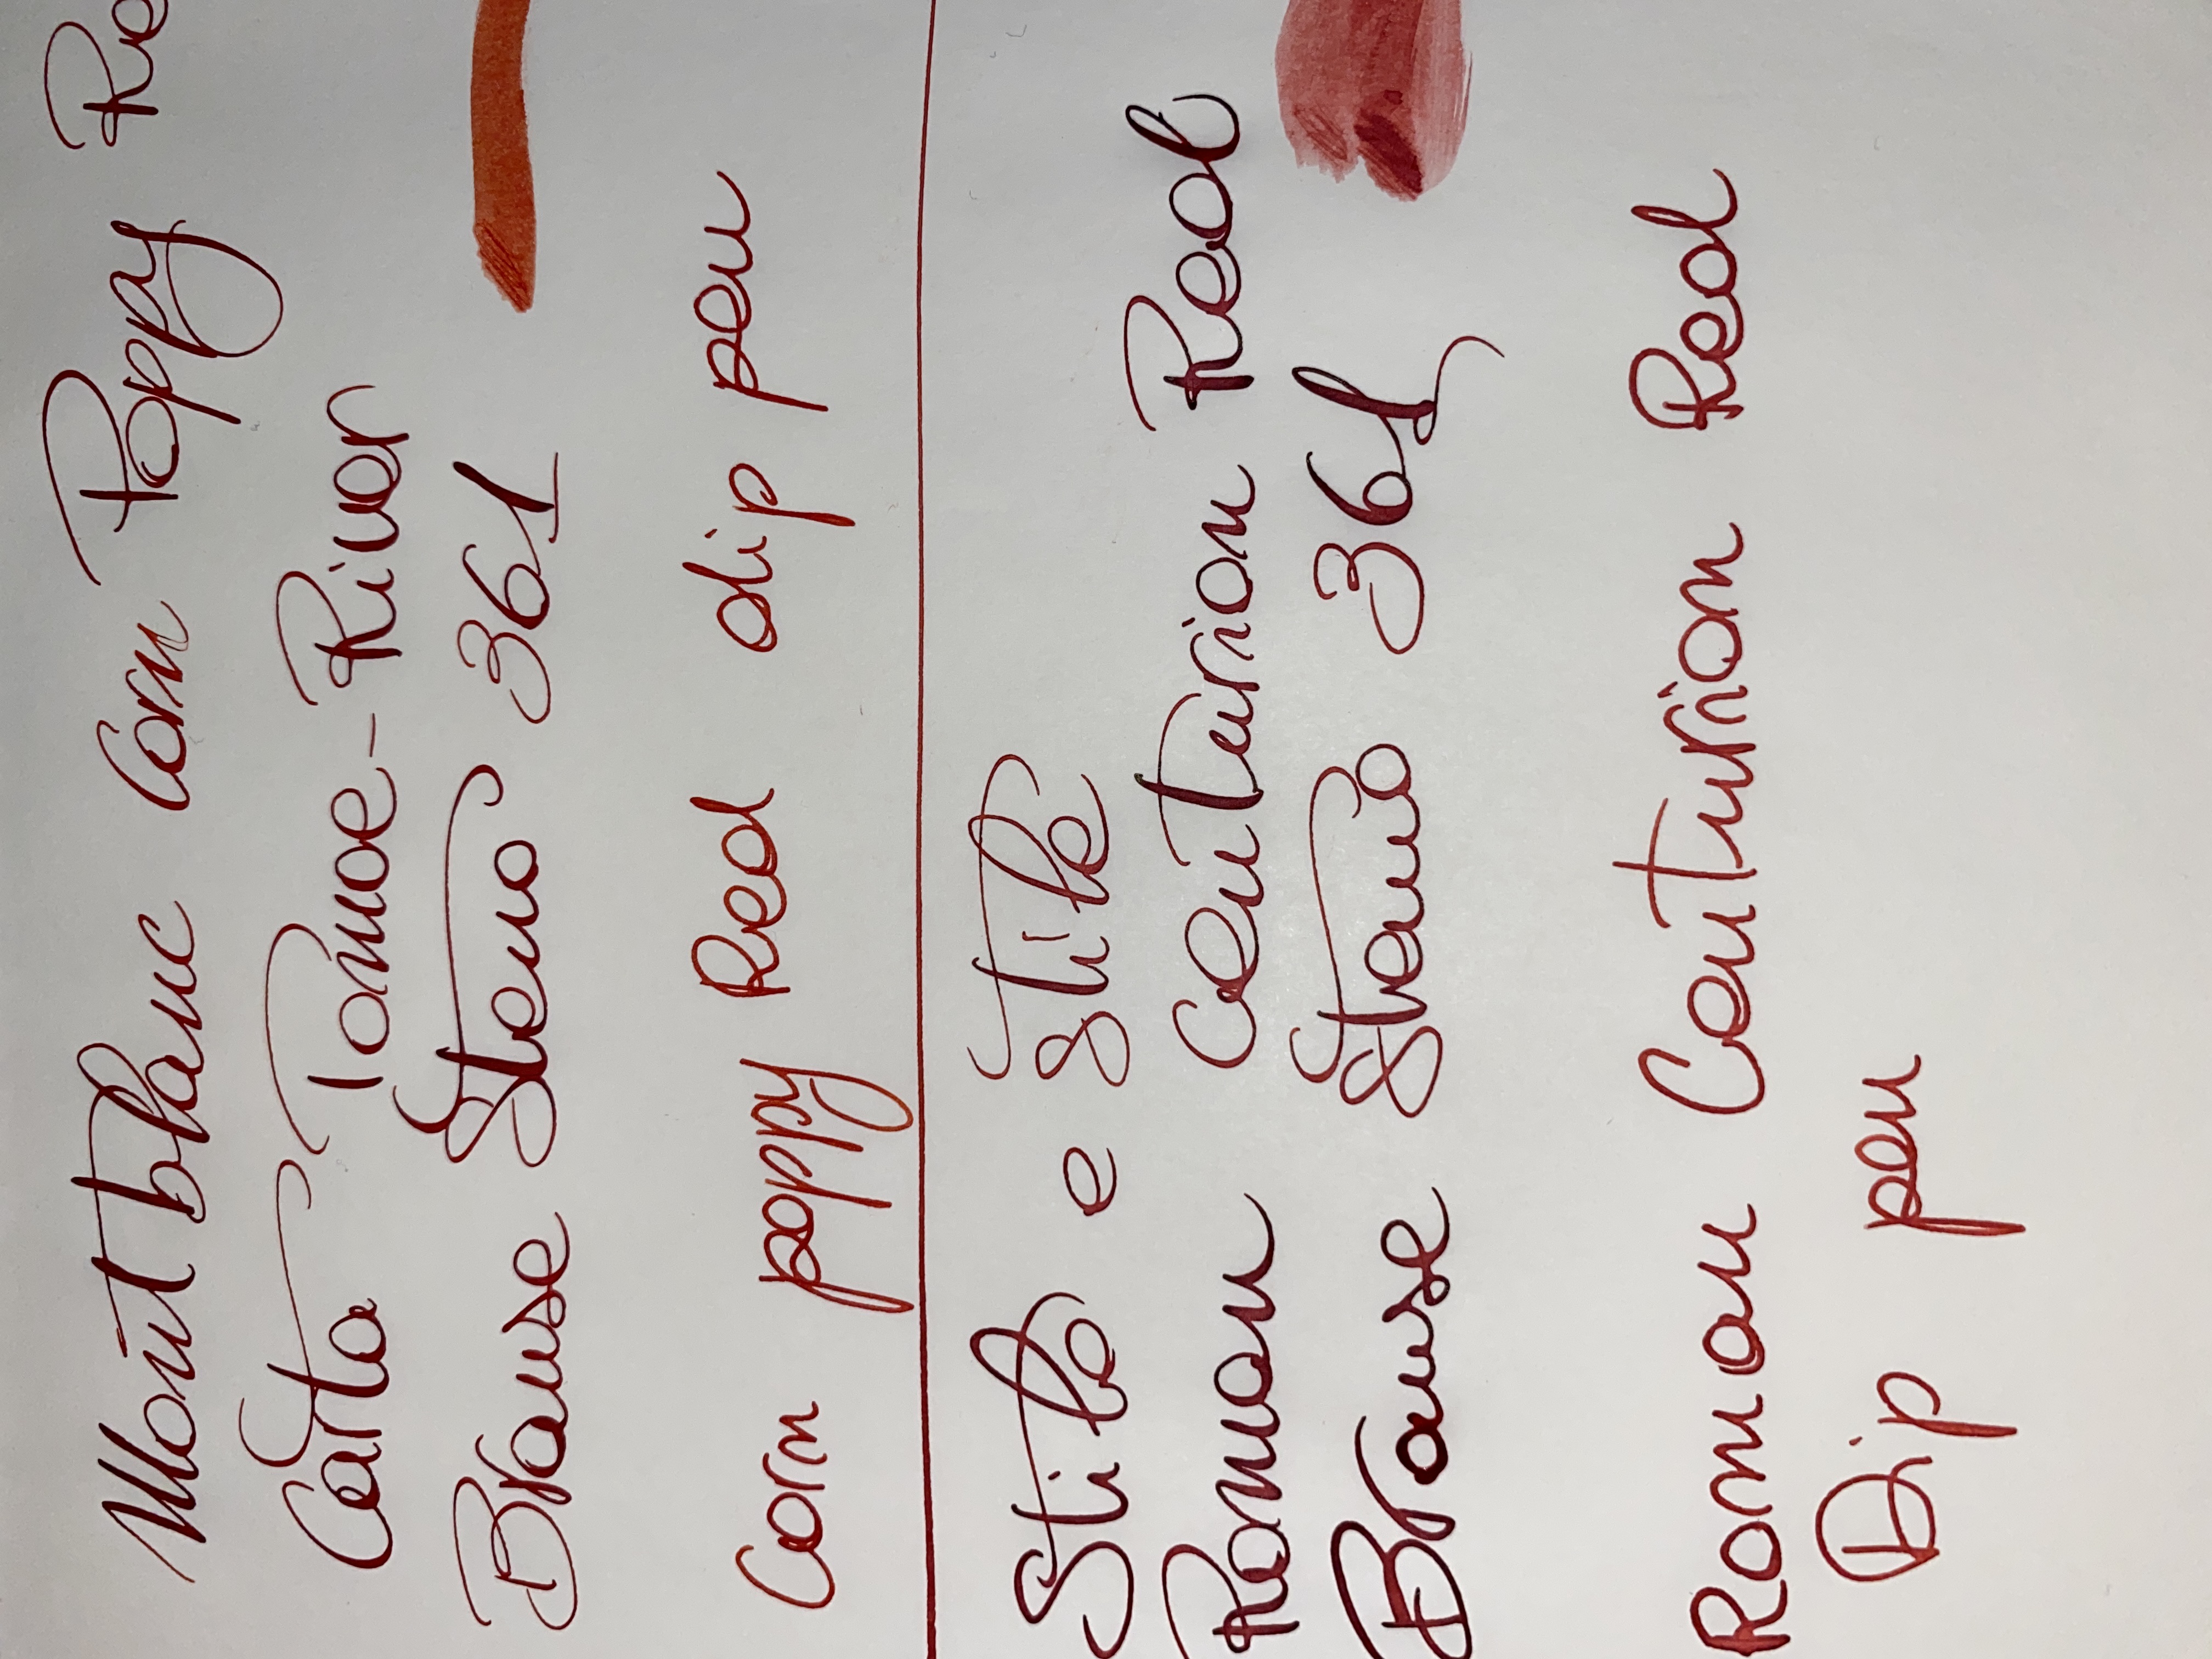 Montblanc Corn Poppy Re
Carta Tomoe-River
Brause Steno 361
Corn poppy Red dip pen
Stilo e Stile
Roman Centurion Red
Brause Steno 361
Roman Centurion Red
Dip pen